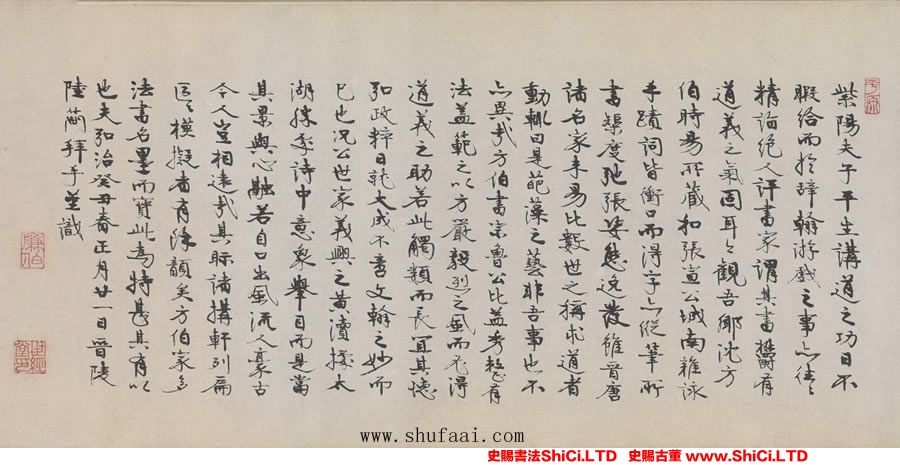 紫陽夫子平生講道之功日不
暇給而於辭翰游戲之事亦往々
精詣絕人評書家謂其書欝有
道義之氣固耳々觀吾鄉沈方
伯時暘所藏和張宣公城南雜詠
手蹟詞皆衝口而得字亦從筆所
書槩度弛張姿態逸發雖晉唐
諸名家未易比數世之稱求道者
動輒曰是葩藻之藝非吾事也不
亦異哉方伯書宗魯公比益考楷有
法蓋範之以方嚴毅烈之風而不得
道義之助若此觸類而長宜其德
弘政粹日就大成不啻文翰之妙而
已也況公世家義興之黃瀆據太
湖勝處詩中意象舉目而是當
其景與心融若自口出風流人豪古
今人豈相遠哉其眎諸搆軒列扁
區々模擬者有餘顏矣方伯家多
法書名墨而寶此為特甚其有以
也夫弘治癸丑春正月廿一日晉陵
陸蕳拜手並識
www.shufaai.com
史賜書法ShiCi.LTD 史賜古董 www.ShiCi.LTD